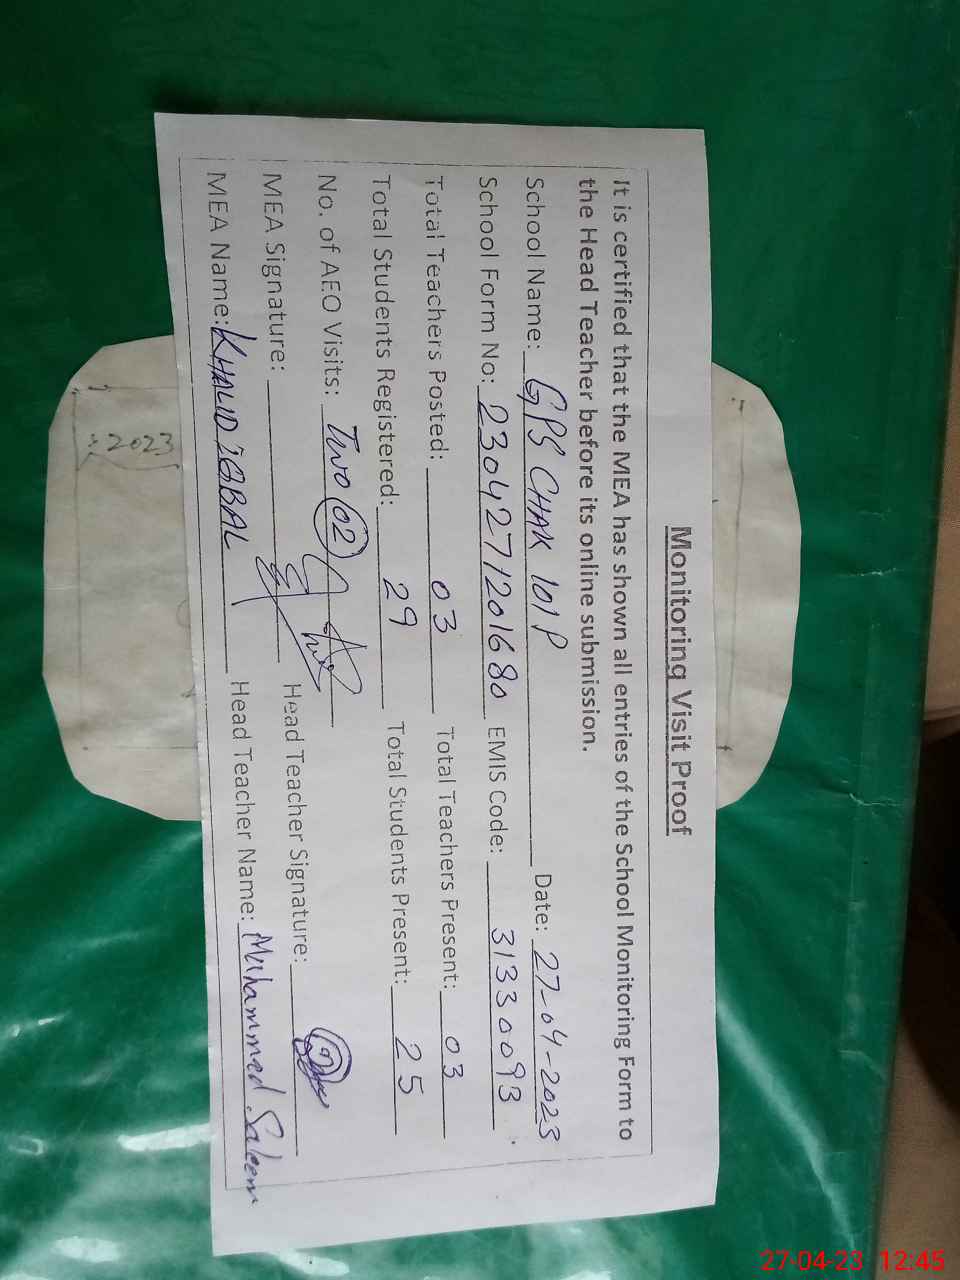 Monitoring Visit Proof
It is certified that the MEA has shown all entries of the School Monitoring Form to
the Head Teacher before its online submission.
School Name: GPS CHAK 101P Date: 27-04-2023
School Form No: 2304271201680 EMIS Code: 31330093
Total Teachers Posted: 03 Total Teachers Present: 03
Total Students Registered: 29 Total Students Present: 25
No. of AEO Visits: Two 02
MEA Signature: Head Teacher Signature:
MEA Name: KHALID iQBAL Head Teacher Name: Muhammad Saleem
2023
27-04-23 12:45